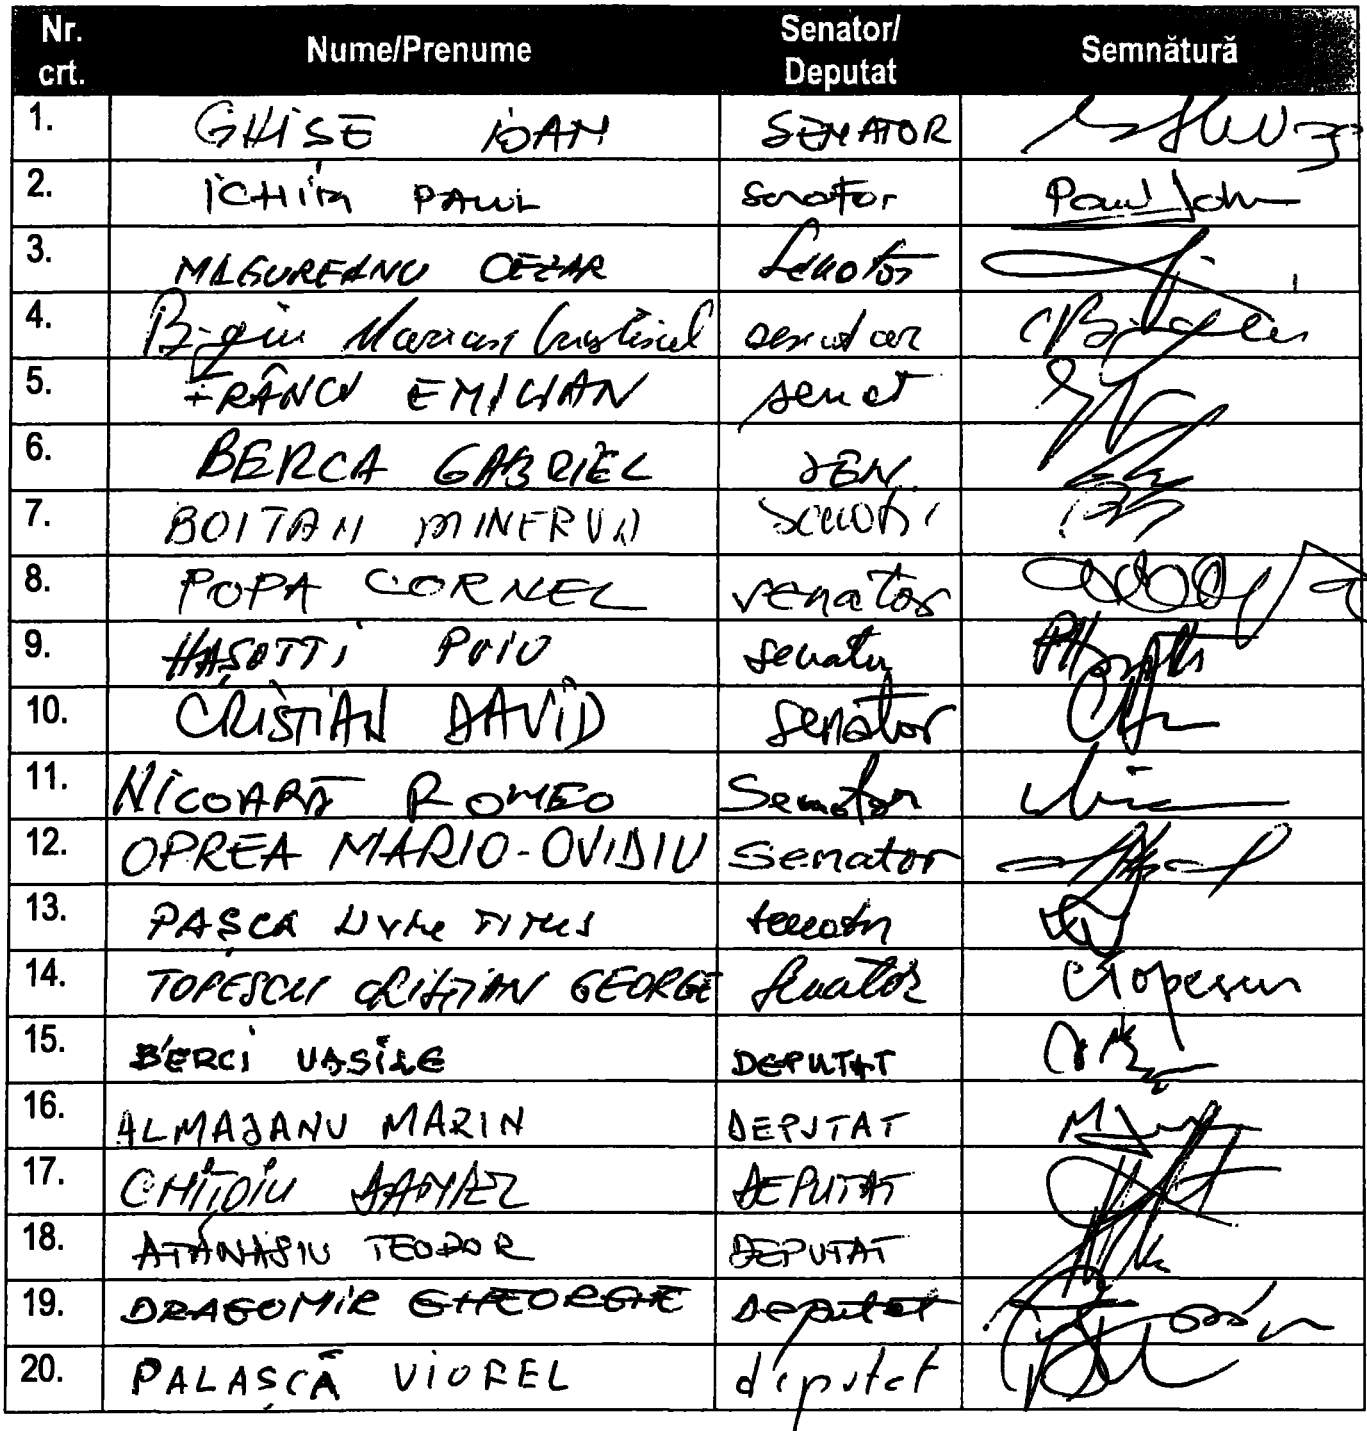 Nr. crt. Nume/Prenume Senator/ Deputat Semnătură
1. GHISE IOAN SENATOR
2. ICHIM PAUL senator Paul Ichim
3. MAGUREANU CEZAR Senator
4. Marian Cristinel senator
5. FRÂNCU EMILIAN senat
6. BERCA GABRIEL SEN.
7. BOITAN MINERVA senator
8. POPA CORNEL senator
9. HAȘOTTI PUIU senator
10. CRISTIAN DAVID senator
11. NICOARĂ ROMEO Senator
12. OPREA MARIO-OVIDIU Senator
13. PAȘCA LIVIU TITUS senator
14. TOPESCU CRISTIAN GEORGE Senator CTopescu
15. BERCI VASILE DEPUTAT
16. ALMAJANU MARIN DEPUTAT
17. CHIȚOIU DANIEL DEPUTAT
18. ATANASIU TEODOR DEPUTAT
19. DRAGOMIR GHEORGHE Deputat
20. PALAȘCĂ VIOREL deputat